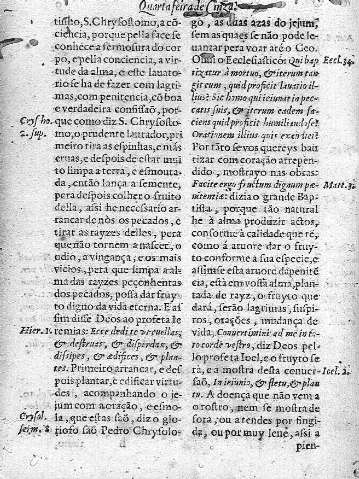 Quarta feira de Cinza.
tissimo, S. Chrysostomo, a cō-
ciencia, porque pella face se
conhece a fermosura do cor-
po, e pella conciencia, a vir-
tude da alma, e este lauato-
rio se ha de fazer com lagri-
mas, com penitencia, cō boa
e verdadeira comissaõ, por-
Crysho. que como diz S. Chrysosto-
2. sup. mo, o prudente laurador, pri
meiro tira as espinhas, e mâs
eruas, e despois de estar mui
to limpa a terra, e esmouta-
da, então lança a semente,
pera despois colher o fruito
della, assi he necessario ar-
rancar de nòs os pecados, e
tirar as rayzes delles, pera
que não tornem a nascer, o
odio, a vingança, e os mais
vicios, pera que limpa a al-
ma das rayzes peçonhentas
dos pecados, possa dar fruy-
to digno da vida eterna. E as
sim disse Deos ao profeta Ie
Hier. 1. remias: Ecce dedi te vt euellas,
& destruas, & disperdas, &
dissipes, & ædifices, & plan-
tes. Primeiro arrancar, e des
pois plantar, e edificar virtu
des, acompanhando o je-
jum com a oração, e esmo-
Crysol. la, que estas saõ, diz o glo-
serm. 8. rioso saõ Pedro Chrysolo-
go, as duas azas do jejum,
sem as quaes se não pode le-
uantar pera voar atè o Ceo.
Olhai o Ecclesiastico: Qui bap Eccl. 34.
tizatur à mortuo, & iterum tan-
git eum, quid proficit lauatio il-
lius? Sic homo qui ieiunat in pec-
catis suis, & iterum eadem fa-
ciens quid proficit humiliando se?
Orationem illius quis exaudiet?
Por tãto se vos quereys bau
tizar com coração arrepen-
dido, mostrayo nas obras:
Facite ergo fructum dignum pœ- Matt. 3.
nitentiæ: dizia o grande Bap-
tista, porque tão natural
he à alma produzir actos,
conforme à calidade que tē,
como à aruore dar o fruy-
to conforme a sua especie, e
assim se esta aruore da penitē
cia, està em vossa alma, plan-
tada de rayz, o fruyto que
darà, serão lagrimas, suspi-
ros, orações, mudança de
vida. Conuertimini ad me in to
to corde vestro, diz Deos pel
lo profeta Ioel, e o fruyto se
rà, e a mostra desta conuer- Ioel. 2.
saõ, In ieiunio, & fletu, & plan
tu. A doença que não vem a
o rostro, nem se mostra de
fora, ou a tendes por fingi-
da, ou por muy leue, assi a
pien-